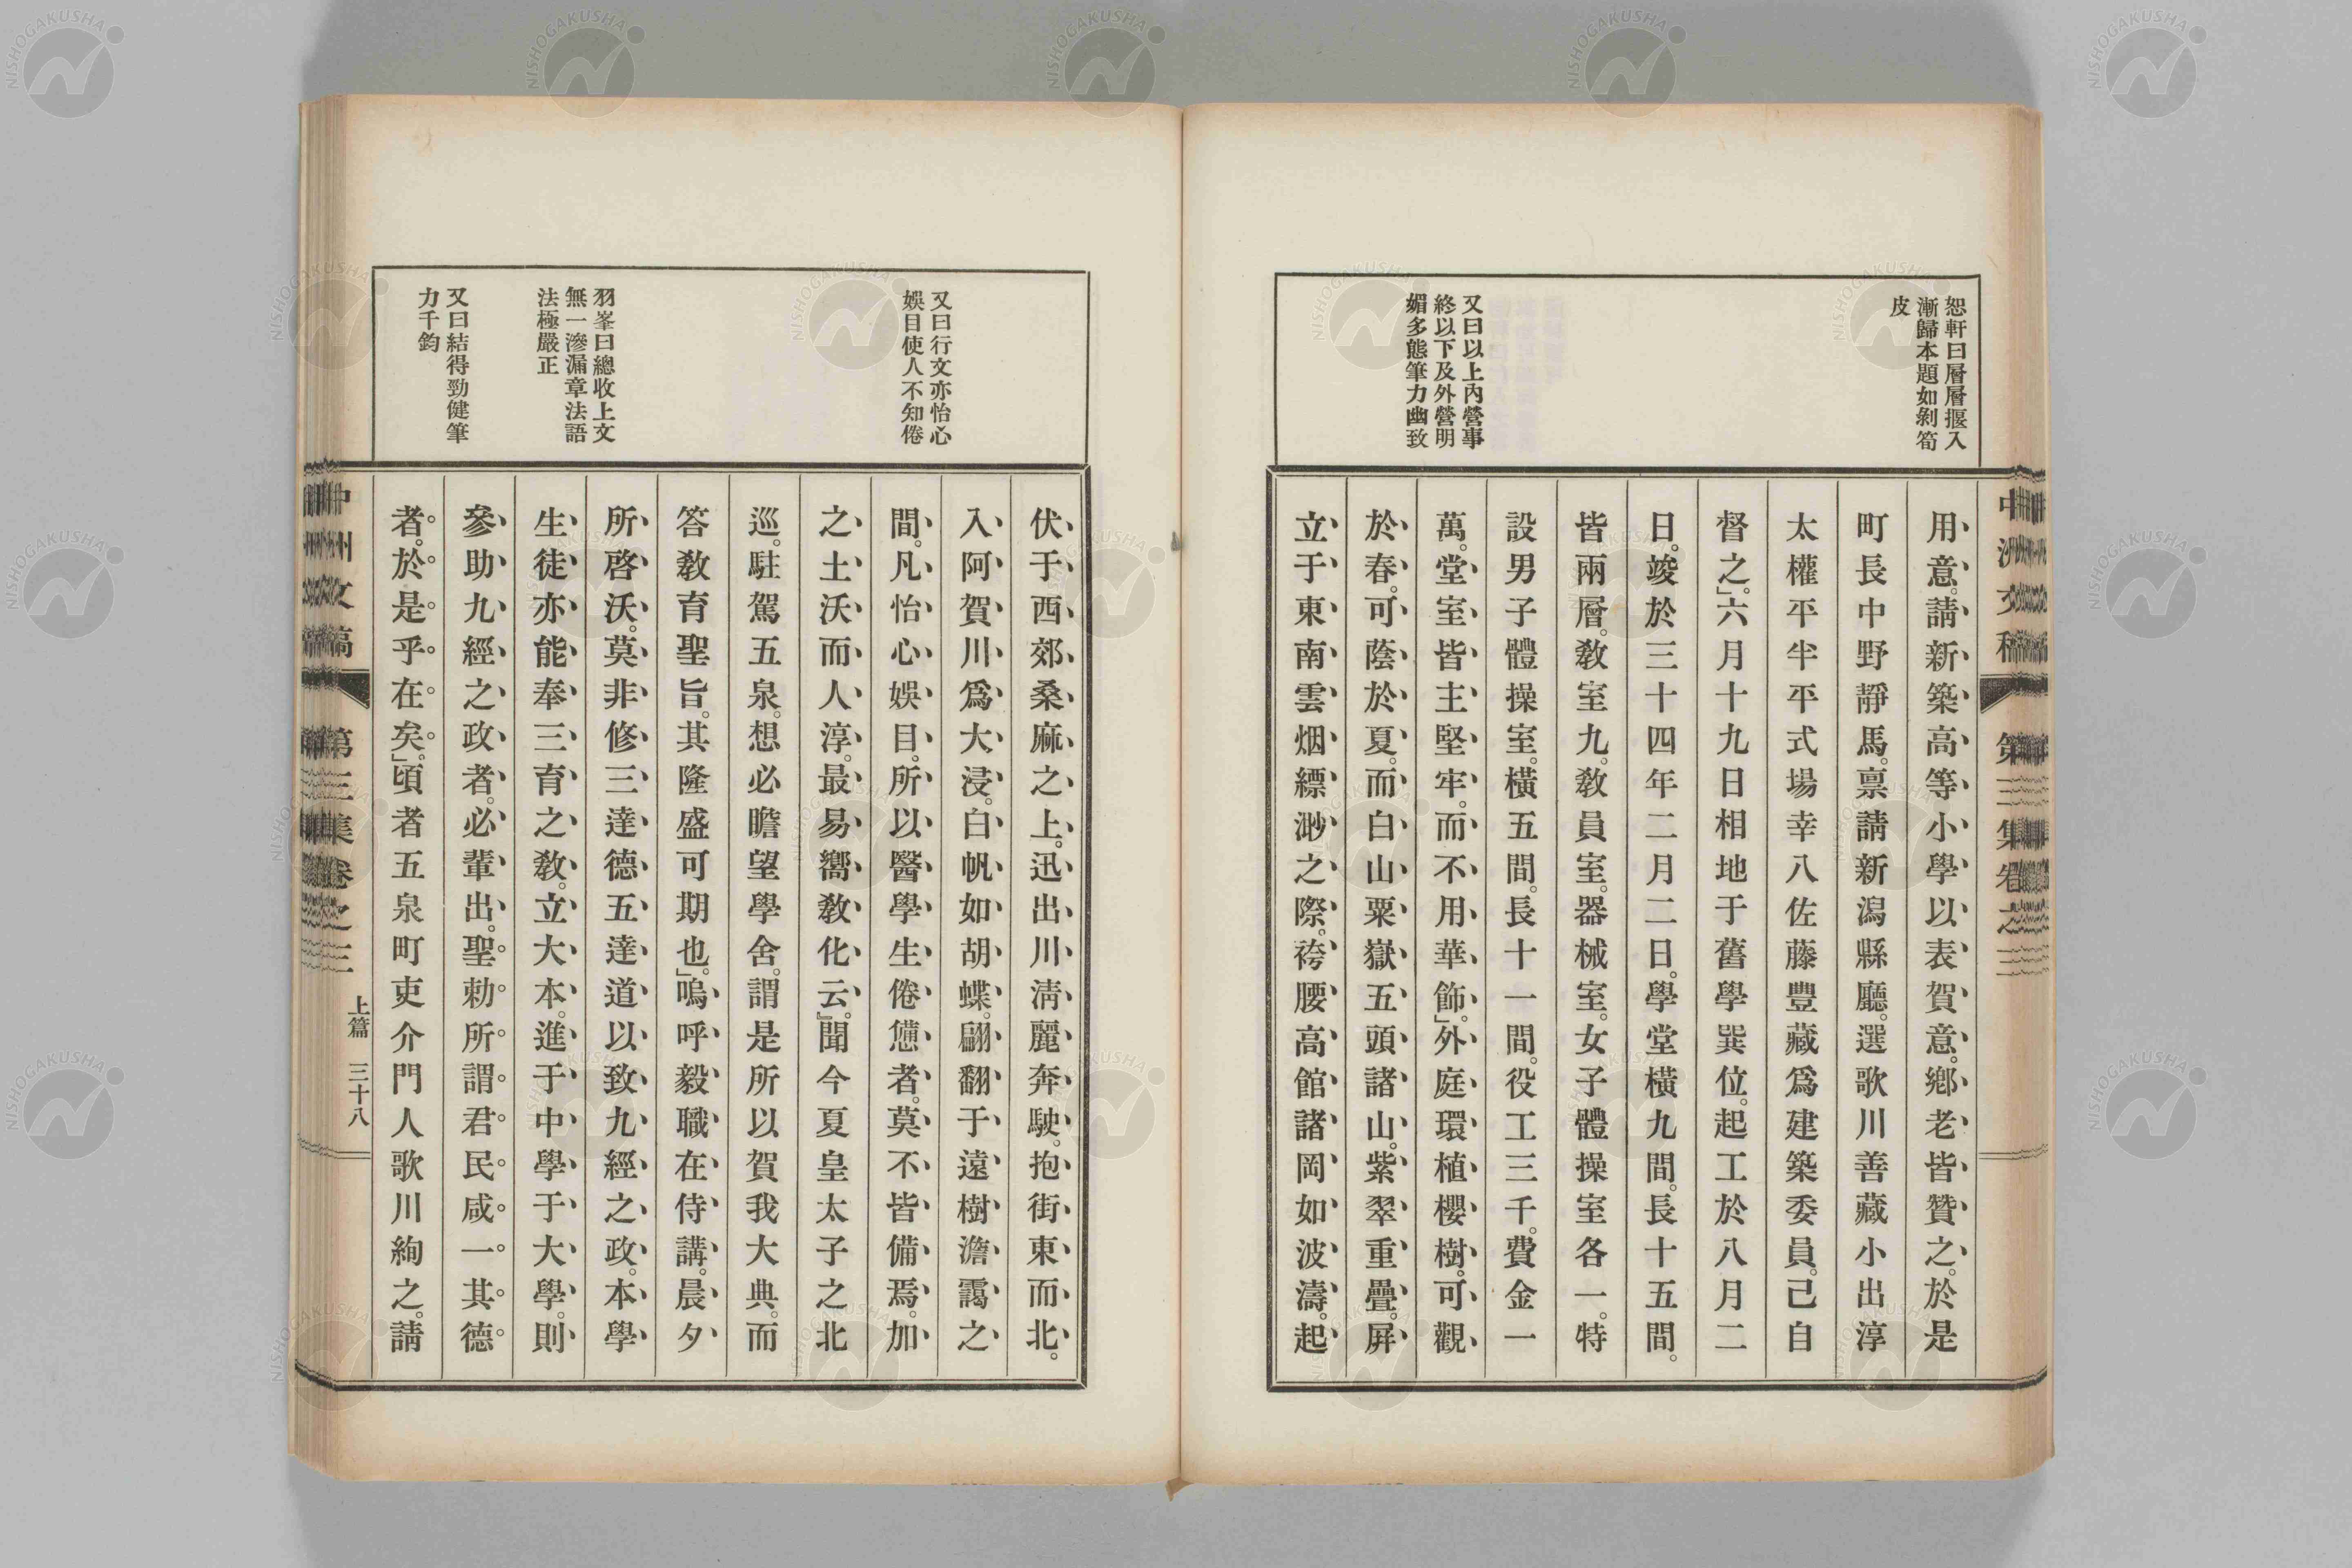 恕軒曰層層捱入
漸歸本題如剝筍
皮
又曰以上內營事
終以下及外營明
媚多態筆力幽致
用意。請新築高等小學以表賀意。鄕老皆贊之。於是
町長中野靜馬。禀請新潟縣廳。選歌川善藏小出淳
太權平半平式場幸八佐藤豐藏爲建築委員。己自
督之。」六月十九日相地于舊學巽位。起工於八月二
日。竣於三十四年二月二日。學堂橫九間。長十五間。
皆兩層。敎室九。敎員室。器械室。女子體操室各一。特
設男子體操室。橫五間。長十一間。役工三千。費金一
萬。堂室皆主堅牢。而不用華飾。」外庭環植櫻樹。可觀
於春。可蔭於夏。而白山粟嶽五頭諸山。紫翠重疊。屏
立于東南雲烟縹渺之際。袴腰高館諸岡如波濤。起
中洲文稿 第三集卷之三
又曰行文亦怡心
娛目使人不知倦
羽峯曰總收上文
無一滲漏章法語
法極嚴正
又曰結得勁健筆
力千鈞
伏于西郊桑麻之上。迅出川淸麗奔駛。抱街東而北。
入阿賀川爲大浸。白帆如胡蝶。翩翻于遠樹澹靄之
間。凡怡心娛目。所以醫學生倦憊者。莫不皆備焉。加
之土沃而人淳。最易嚮敎化云。』聞今夏皇太子之北
巡。駐駕五泉。想必瞻望學舍。謂是所以賀我大典。而
答敎育聖旨。其隆盛可期也。」嗚呼毅職在侍講。晨夕
所啓沃。莫非修三達德五達道以致九經之政。本學
生徒亦能奉三育之敎。立大本。進于中學于大學。則
參助九經之政者。必輩出。聖勅所謂君民咸一其德
者。於是乎在矣。」頃者五泉町吏介門人歌川絢之。請
中洲文稿 第三集卷之三 上篇 三十八
NISHOGAKUSHA